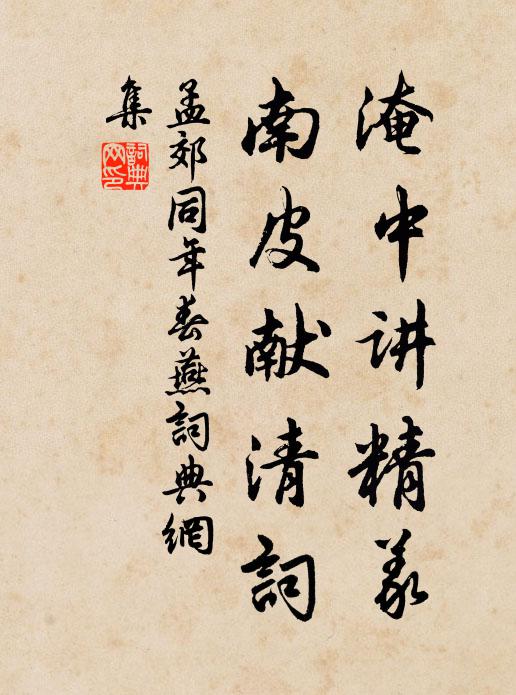 淹中讲精義
南皮献清詞
孟郊同年春燕詞典網
集
詞典
网印